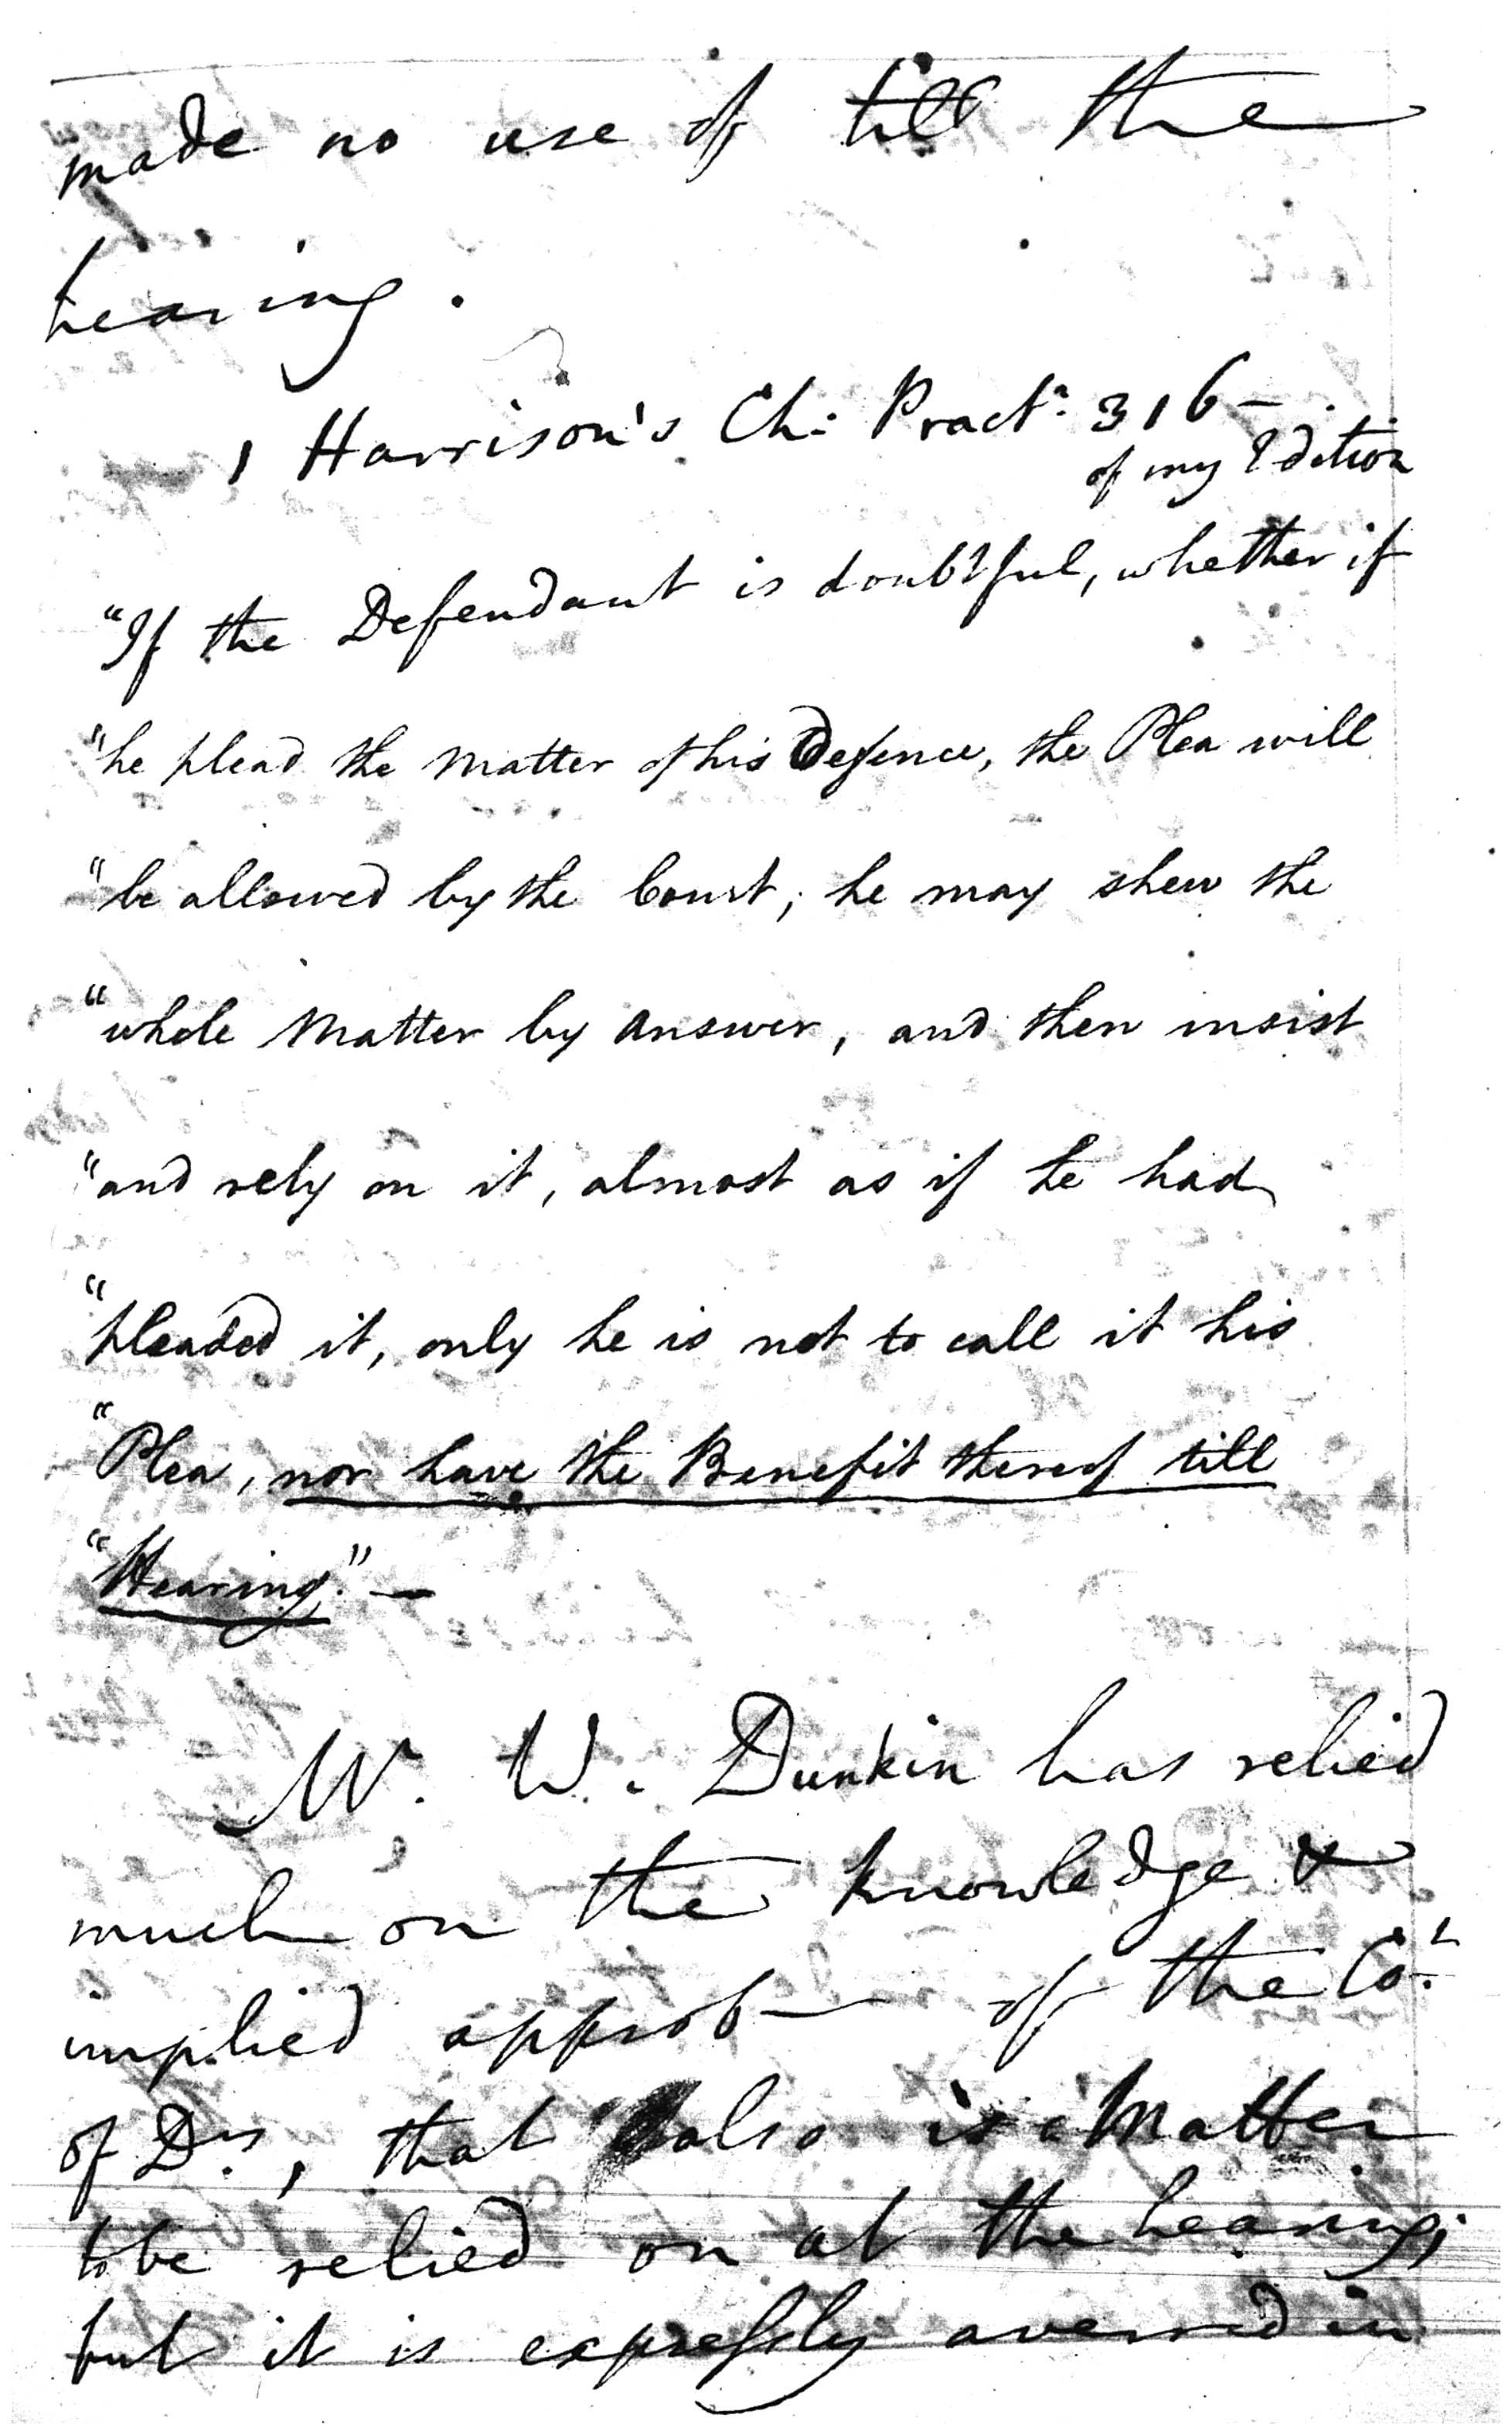 made no use of till the
hearing.
1 Harrison's Ch: Pract: 316 –
of my Edition
"If the Defendant is doubtful, whether if
"he plead the Matter of his Defence, the Plea will
"be allowed by the Court; he may shew the
"whole Matter by Answer, and then insist
"and rely on it, almost as if he had
"pleaded it, only he is not to call it his
"Plea, nor have the Benefit thereof till
"Hearing." —
Mr. W. Dunkin has relied
much on the knowledge &
implied approb— of the Co:t
of D:rs, that also is a Matter
to be relied on at the hearing;
but it is expressly averred in